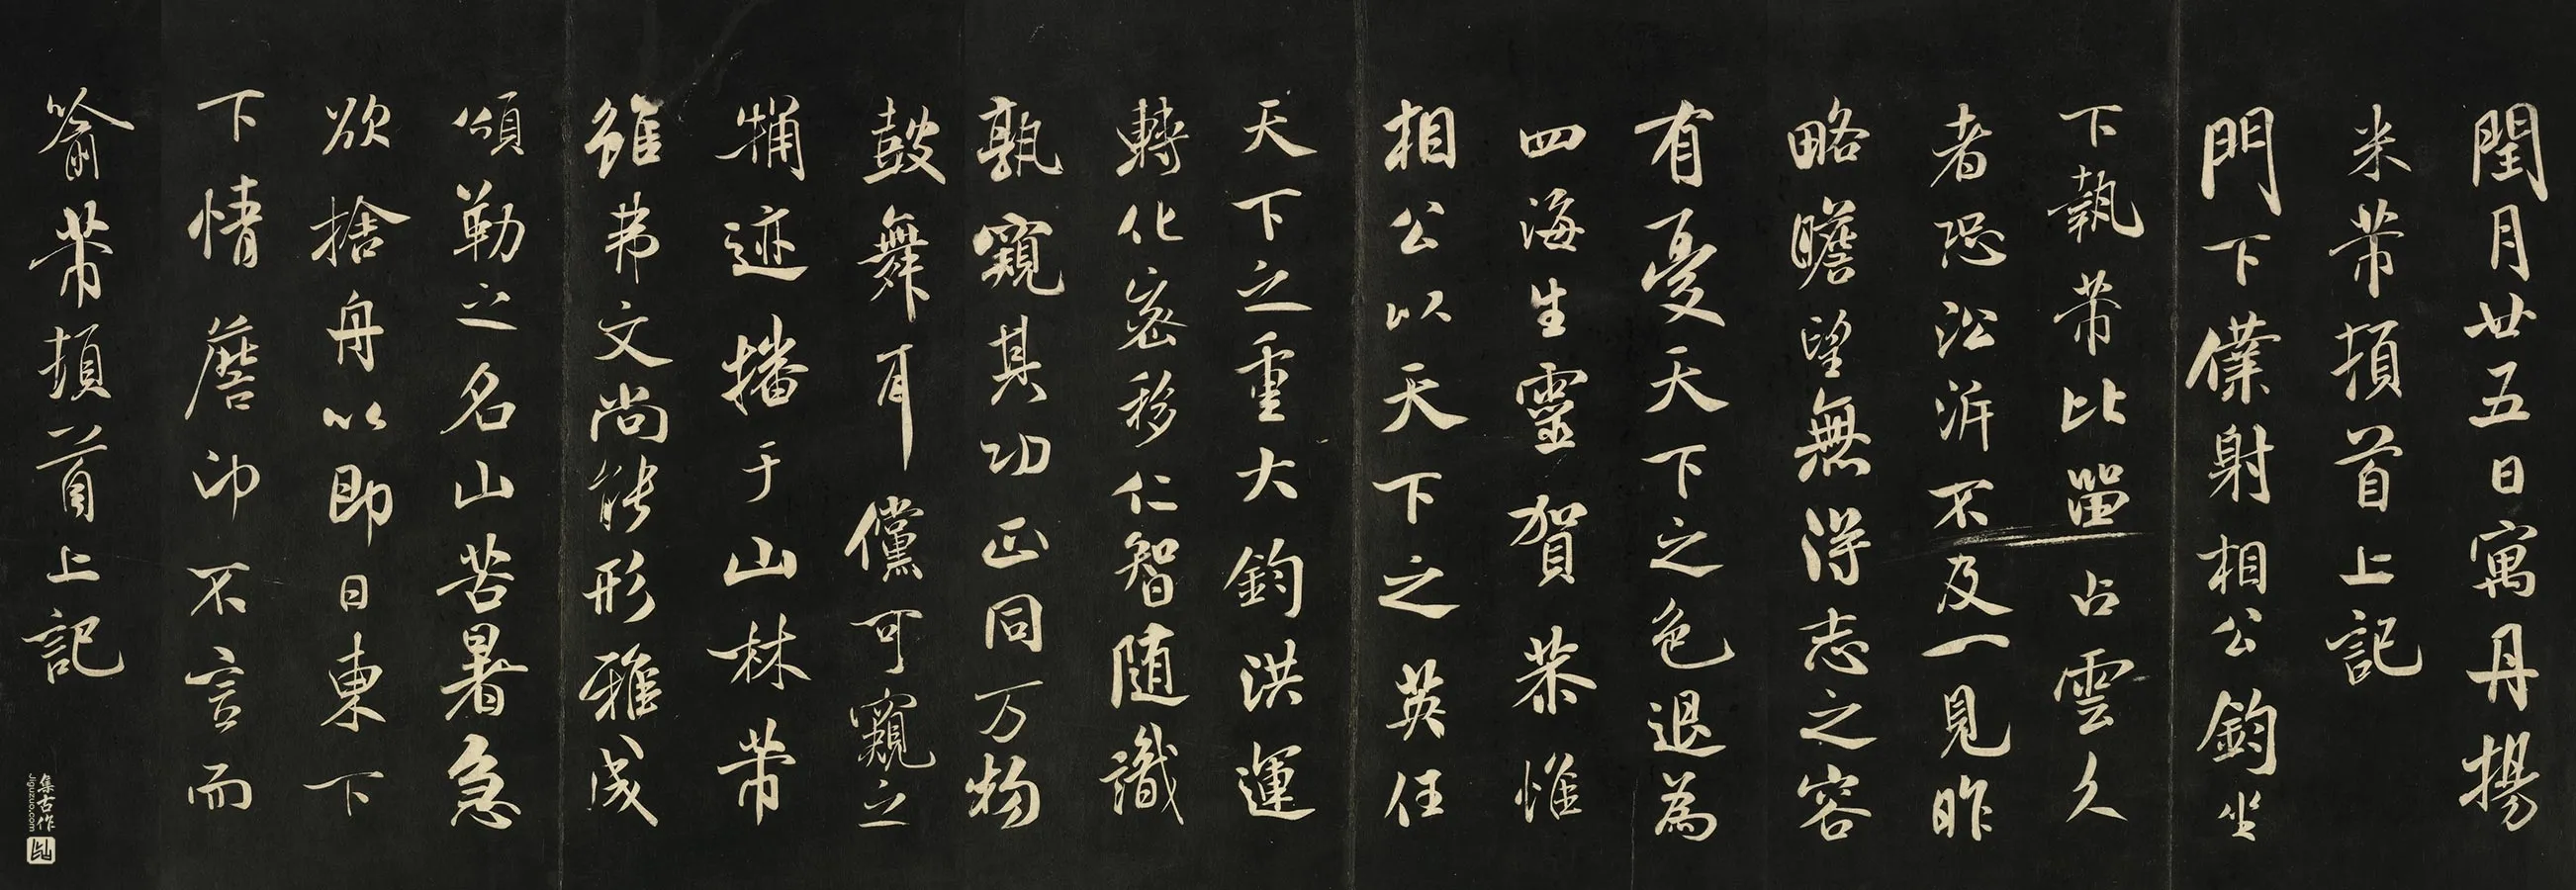 閏月廿五日寓丹揚
米芾頓首上記
門下僕射相公鈞坐
下執芾比畱占雲久
者恐沿泝不及一見昨
略瞻望無得志之容
有憂天下之色退為
四海生靈賀恭惟
相公以天下之英任
天下之重大鈞洪運
轉化密移仁智随識
孰窺其功正同万物
鼓舞耳儻可窺之
迹播于山林芾
雖弗文尚能形雅成
頌勒之名山苦暑急
欲捨舟以即日東下
下情詹仰不言而
喻芾頓首上記
集古作
jiguzuo.com